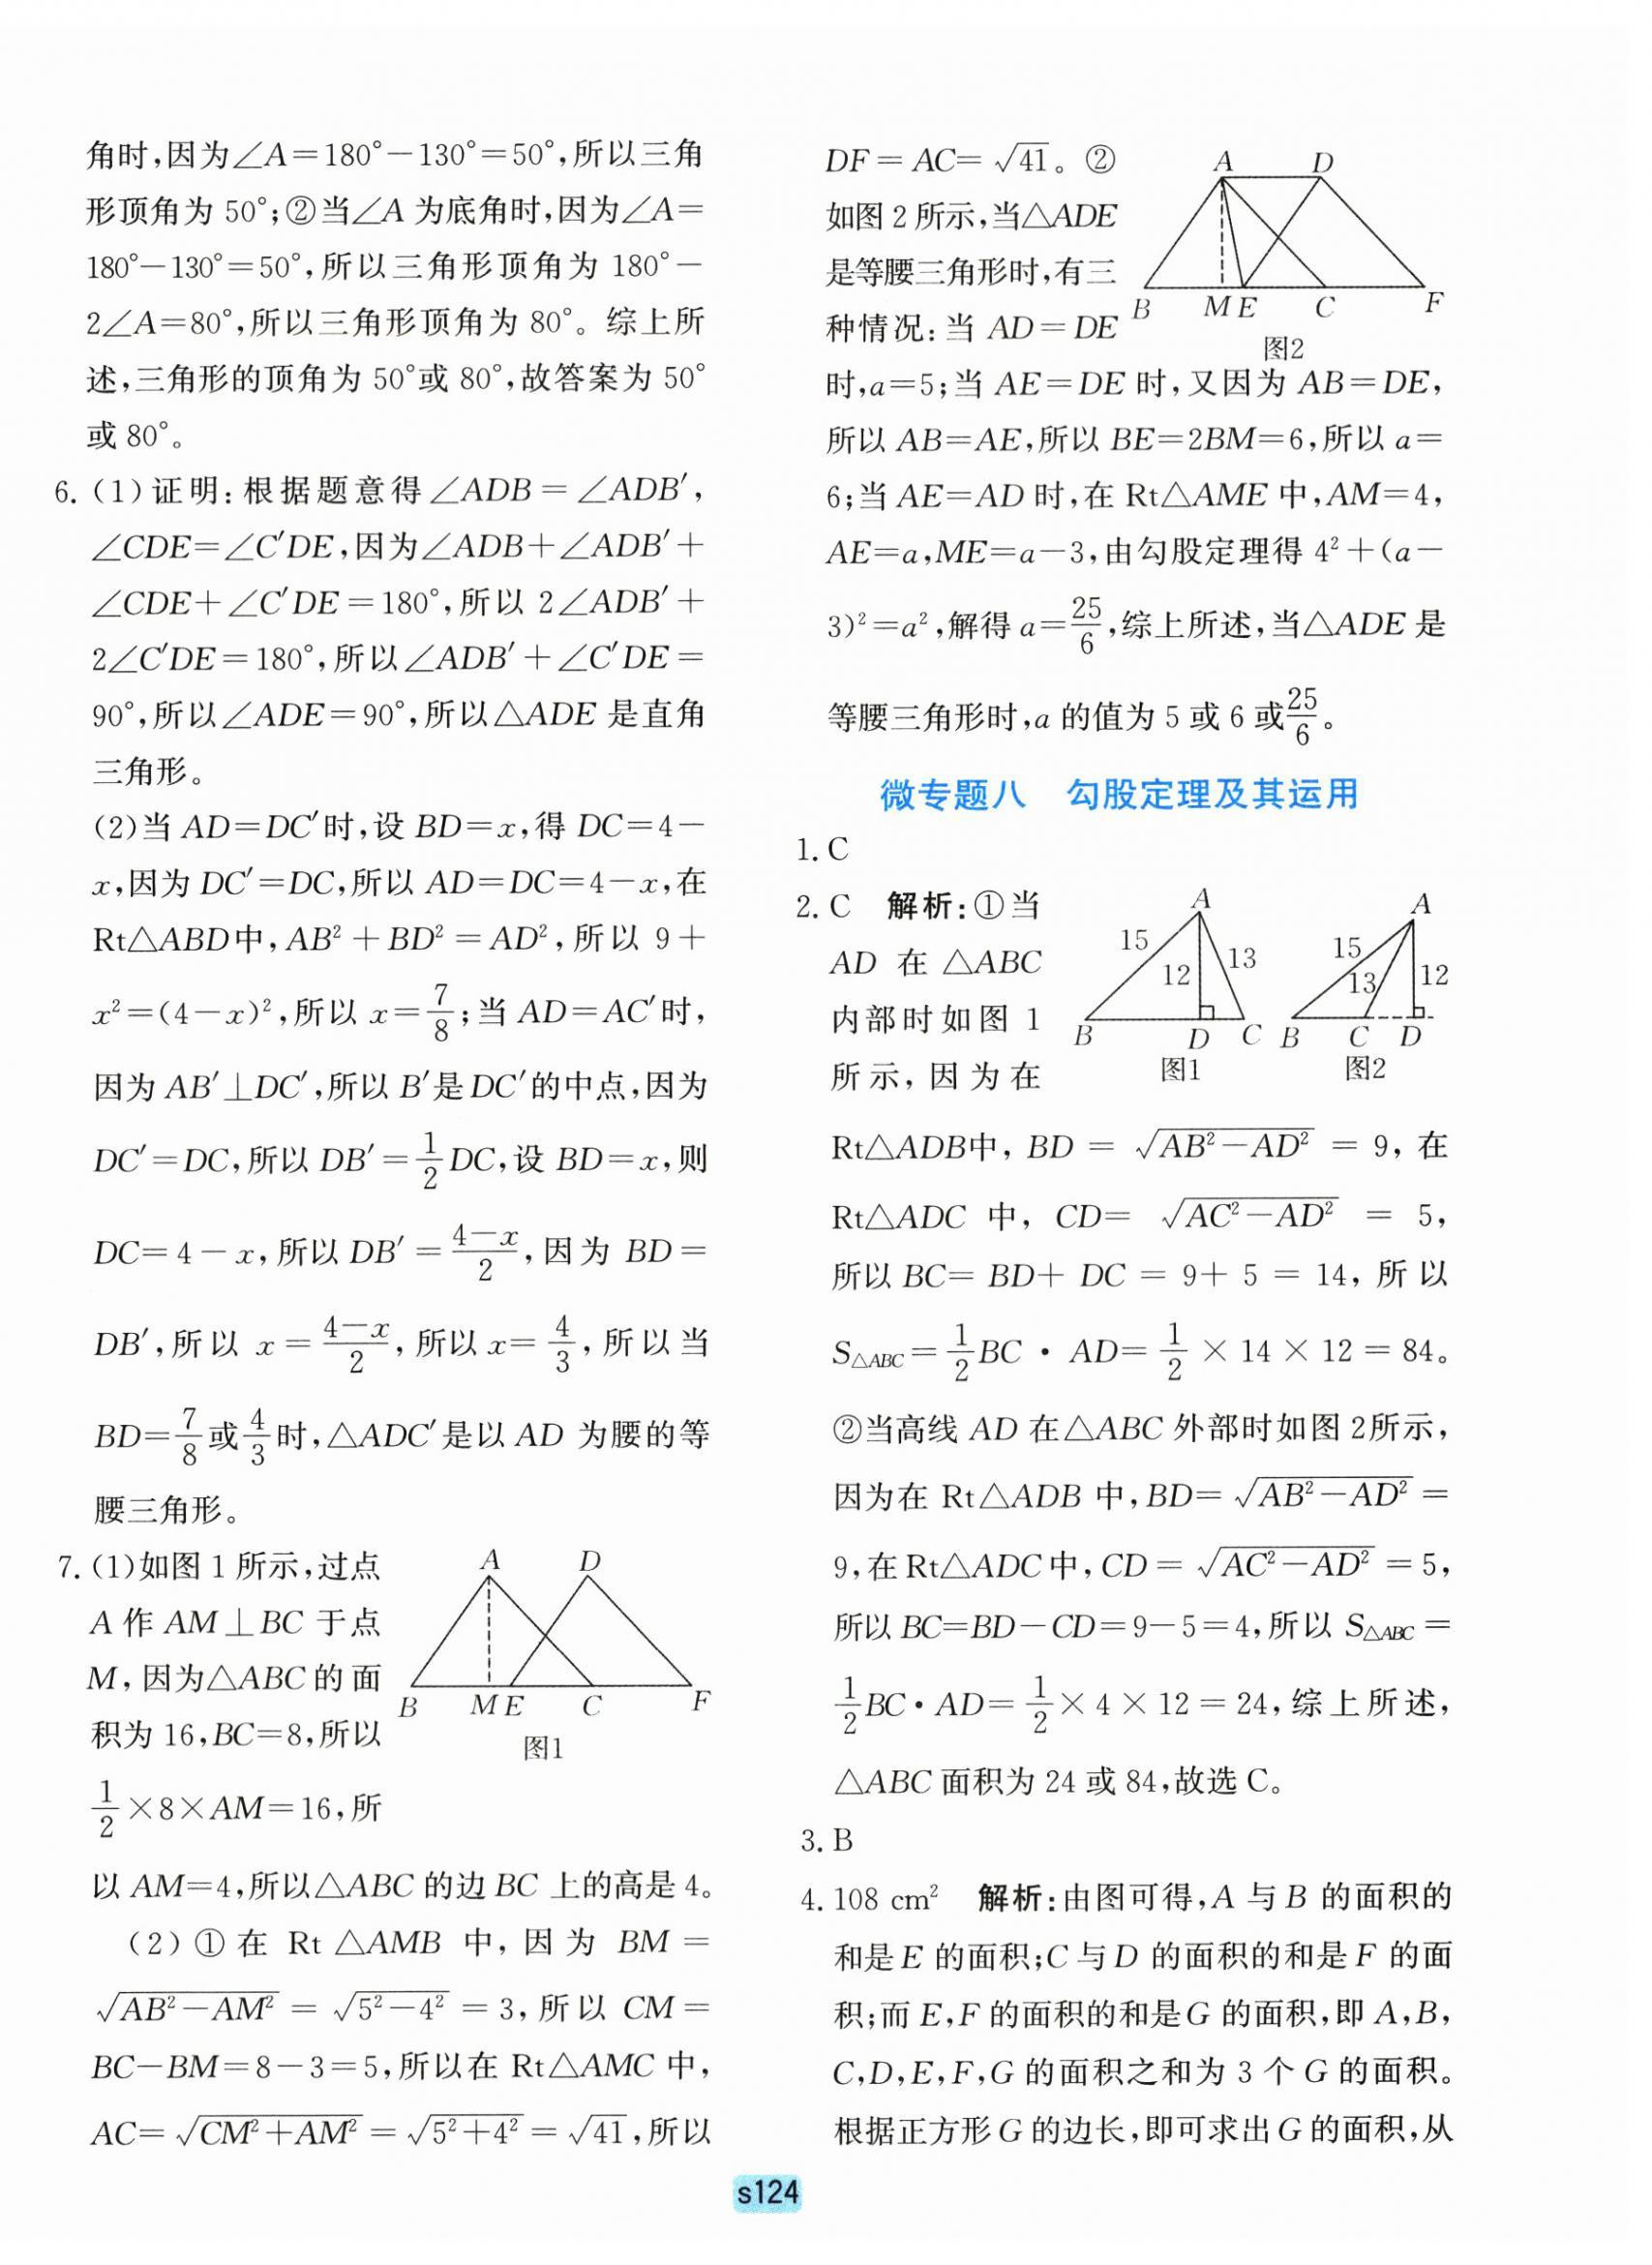 角时,因为∠A=180°-130°=50°,所以三角
形顶角为 50°;②当∠A 为底角时,因为∠A=
180°-130°=50°,所以三角形顶角为 180°-
2∠A=80°,所以三角形顶角为 80°。综上所
述,三角形的顶角为 50°或 80°,故答案为 50°
或 80°。
6.(1)证明:根据题意得∠ADB=∠ADB′,
∠CDE=∠C′DE,因为∠ADB+∠ADB′+
∠CDE+∠C′DE=180°,所以 2∠ADB′+
2∠C′DE=180°,所以∠ADB′+∠C′DE=
90°,所以∠ADE=90°,所以△ADE 是直角
三角形。
(2)当 AD=DC′时,设 BD=x,得 DC=4-
x,因为 DC′=DC,所以 AD=DC=4-x,在
Rt△ABD中,AB²+BD²=AD²,所以 9+
x²=(4-x)²,所以 x=7/8;当 AD=AC′时,
因为 AB′⊥DC′,所以 B′是DC′的中点,因为
DC′=DC,所以 DB′=1/2DC,设 BD=x,则
DC=4-x,所以 DB′=(4-x)/2,因为 BD=
DB′,所以 x=(4-x)/2,所以 x=4/3,所以当
BD=7/8或4/3时,△ADC′是以 AD 为腰的等
腰三角形。
7.(1)如图 1 所示,过点
A 作 AM⊥BC 于点
M,因为△ABC的面
积为 16,BC=8,所以
1/2×8×AM=16,所
A D
B M E C F
图1
以 AM=4,所以△ABC 的边 BC 上的高是 4。
(2)①在 Rt△AMB 中,因为 BM=
√(AB²-AM²)=√(5²-4²)=3,所以 CM=
BC-BM=8-3=5,所以在 Rt△AMC 中,
AC=√(CM²+AM²)=√(5²+4²)=√41,所以
DF=AC=√41。②
如图 2 所示,当△ADE
是等腰三角形时,有三
种情况:当 AD=DE
A D
B M E C F
图2
时,a=5;当 AE=DE 时,又因为 AB=DE,
所以 AB=AE,所以 BE=2BM=6,所以 a=
6;当 AE=AD 时,在 Rt△AME 中,AM=4,
AE=a,ME=a-3,由勾股定理得 4²+(a-
3)²=a²,解得 a=25/6,综上所述,当△ADE 是
等腰三角形时,a 的值为 5 或 6 或25/6。
微专题八 勾股定理及其运用
1. C
2. C 解析:①当
AD 在△ABC
内部时如图 1
所示,因为在
A
15 12 13
B D C
图1
A
15 13 12
B C D
图2
Rt△ADB中,BD=√(AB²-AD²)=9,在
Rt△ADC 中,CD=√(AC²-AD²)=5,
所以 BC=BD+DC=9+5=14,所以
S△ABC=1/2BC·AD=1/2×14×12=84。
②当高线 AD 在△ABC 外部时如图 2所示,
因为在 Rt△ADB 中,BD=√(AB²-AD²)=
9,在Rt△ADC中,CD=√(AC²-AD²)=5,
所以 BC=BD-CD=9-5=4,所以 S△ABC=
1/2BC·AD=1/2×4×12=24,综上所述,
△ABC 面积为 24 或 84,故选 C。
3. B
4. 108 cm² 解析:由图可得,A 与 B 的面积的
和是 E 的面积;C 与 D 的面积的和是 F 的面
积;而 E,F 的面积的和是G 的面积,即 A,B,
C,D,E,F,G 的面积之和为 3 个 G 的面积。
根据正方形 G 的边长,即可求出 G 的面积,从
s124